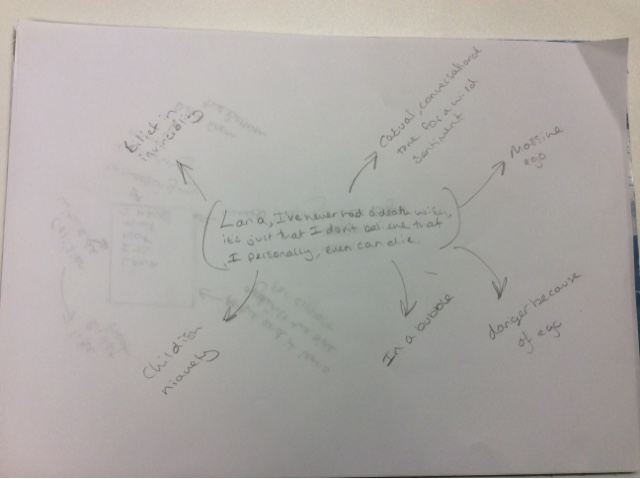 Belief in
invincibility
Casual, conversational
tone for a wild
sentiment
Massive
ego
Lana, I've never had a death wish,
it's just that I don't believe that
I personally, even can die.
Childish
niavety
In a bubble
danger because
of ego